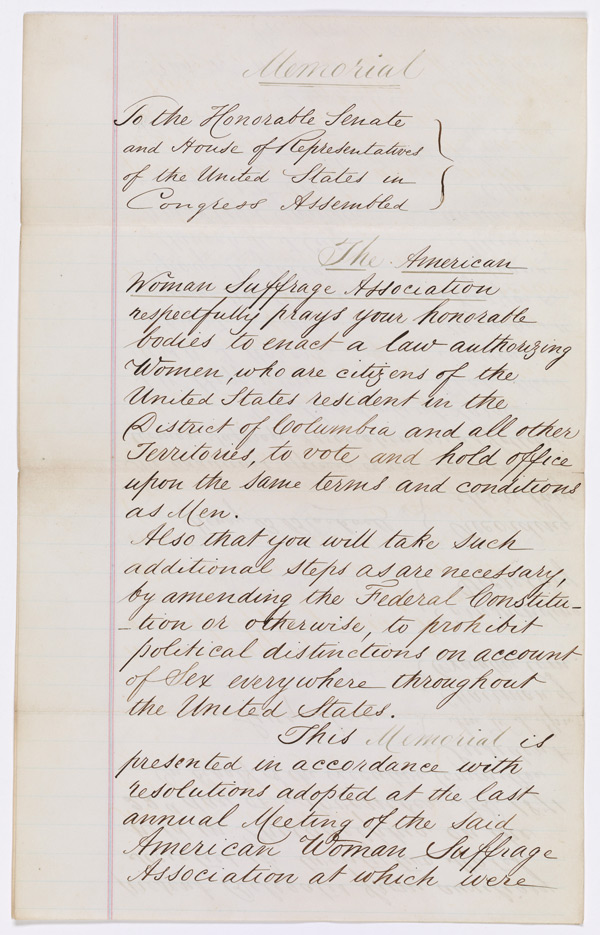 Memorial
To the Honorable Senate
and House of Representatives
of the United States in
Congress Assembled
The American
Woman Suffrage Association
respectfully prays your honorable
bodies to enact a law authorizing
Women, who are citizens of the
United States resident in the
District of Columbia and all other
Territories, to vote and hold office
upon the same terms and conditions
as Men.
Also that you will take such
additional steps as are necessary,
by amending the Federal Constitu-
-tion or otherwise, to prohibit
political distinctions on account
of Sex everywhere throughout
the United States.
This Memorial is
presented in accordance with
resolutions adopted at the last
annual Meeting of the said
American Woman Suffrage
Association at which were